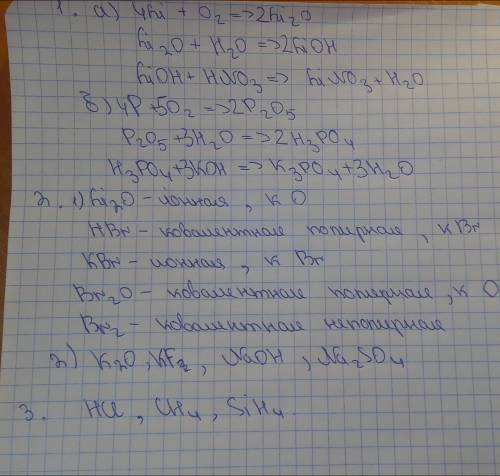 1. а) 4Li + O₂ => 2Li₂O
Li₂O + H₂O => 2LiOH
LiOH + HNO₃ => LiNO₃ + H₂O
б) 4P + 5O₂ => 2P₂O₅
P₂O₅ + 3H₂O => 2H₃PO₄
H₃PO₄ + 3KOH => K₃PO₄ + 3H₂O
2. 1) Li₂O - ионная, к O
HBr - ковалентная полярная, к Br
KBr - ионная, к Br
Br₂O - ковалентная полярная, к O
Br₂ - ковалентная неполярная
2) K₂O, KF₂, NaOH, Na₂SO₄
3. HCl, CH₄, SiH₄